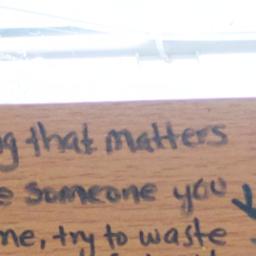 g that matters
e someone you
me, try to waste